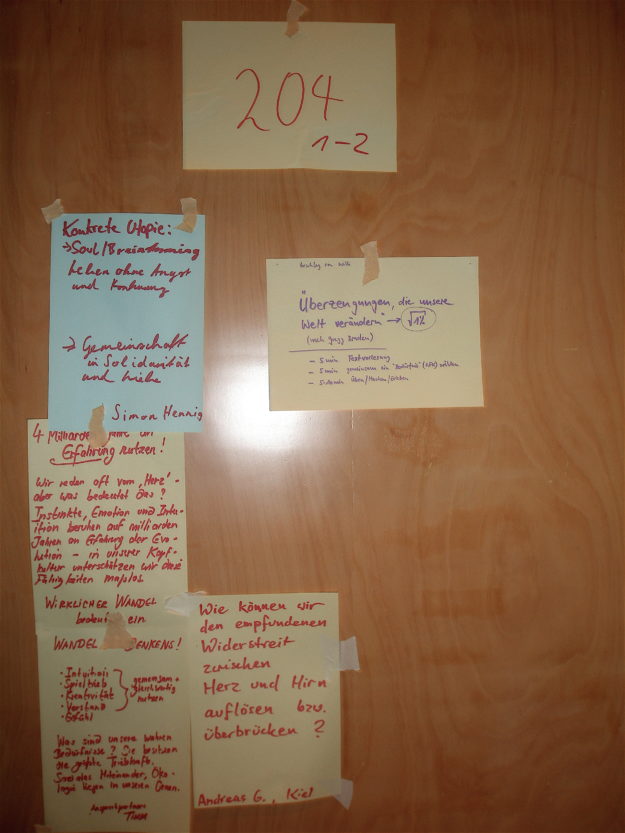 204
1-2
Konkrete Utopie:
→ Soul/Brainstorming
Leben ohne Angst
und
→ Gemeinschaft
in Solidarität
und Liebe
Simon Hennig
Überzeugungen, die unsere
Welt verändern" → √1%
(nach Gregg Braden)
- 5 min Textvorlesung
- 5 min gemeinsam ein "Bedürfnis" (GFK) wählen
4 Milliarden Jahre an
Erfahrung nutzen!
Wir reden oft vom „Herz" -
aber was bedeutet das?
Instinkte, Emotion und Intu-
ition beruhen auf milliarden
Jahren an Erfahrung der Evo-
lution - in unserer Kopf-
kultur unterschätzen wir diese
Fähigkeiten maßlos.
WIRKLICHER WANDEL
bedeutet ein
WANDEL DENKENS!
· Intuition
· Spieltrieb
· Kreativität
· Verstand
· Gefühl
gemeinsam +
gleichwertig
nutzen
Was sind unsere wahren
Bedürfnisse? Sie besitzen
die größte Triebkraft.
Soziales Miteinander, Öko-
logie liegen in unseren Genen.
Ansprechpartner:
Timm
Wie können wir
den empfundenen
Widerstreit
zwischen
Herz und Hirn
auflösen bzw.
überbrücken?
Andreas G., Kiel